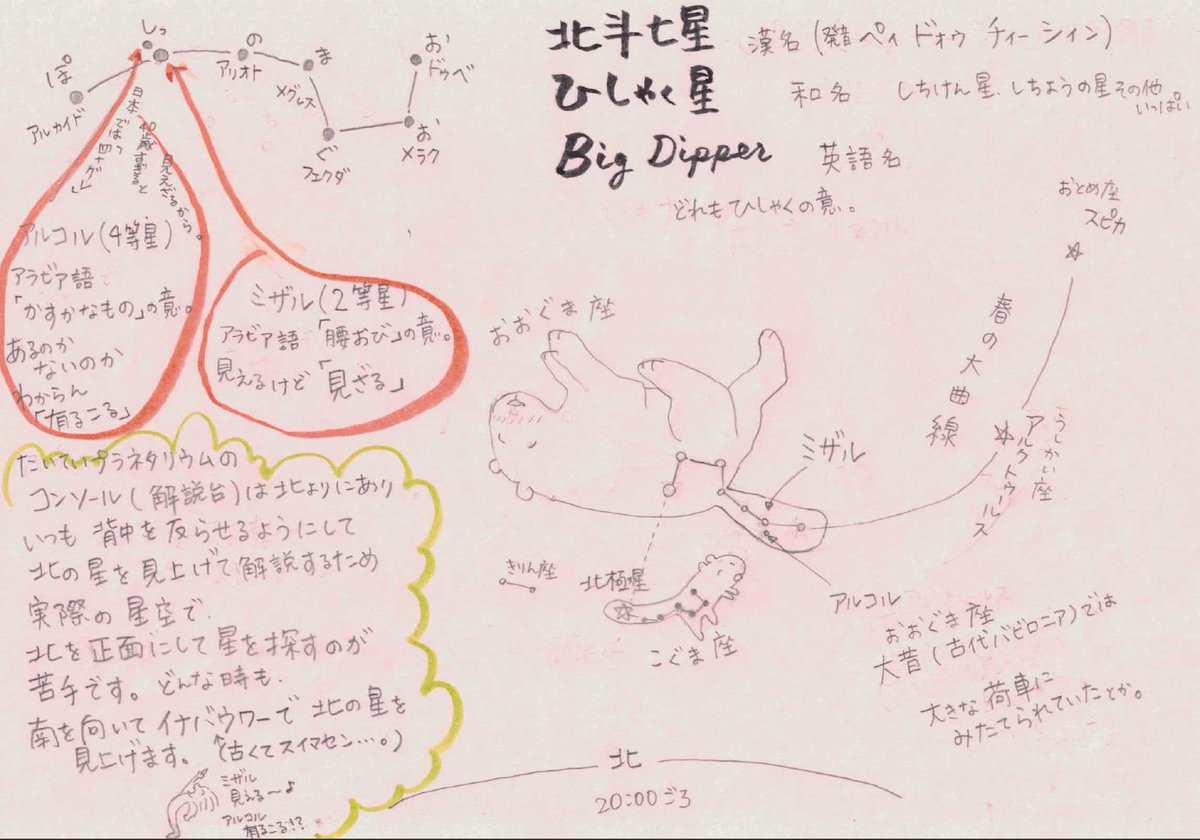 北斗七星 漢名(発音 ペイ ドォゥ チィー シィン)
ひしゃく星 和名 しちけん星、しちようの星 その他
いっぱい
Big Dipper 英語名
どれもひしゃくの意。
お
ドゥベ
お
メラク
ぐ
フェクダ
ま
メグレズ
の
アリオト
しっ
ぽ
アルカイド
日本では「四十グレ」
40歳すぎると
見えざるから。
アルコル(4等星)
アラビア語
「かすかなもの」の意。
あるのか
ないのか
わからん
「有るこる」
ミザル(2等星)
アラビア語「腰おび」の意。
見えるけど「見ざる」
おとめ座
スピカ
春の大曲線
うしかい座
アルクトゥールス
おおぐま座
ミザル
アルコル
きりん座
北極星
こぐま座
おおぐま座
大昔(古代バビロニア)では
大きな荷車に
みたてられていたとか。
だいていプラネタリウムの
コンソール(解説台)は北よりにあり
いつも背中を反らせるようにして
北の星を見上げて解説するため
実際の星空で、
北を正面にして星を探すのが
苦手です。どんな時も、
南を向いてイナバウワーで北の星を
見上げます。(古くてスイマセン…。)
ミザル
見える〜よ
アルコル
有るこる!?
北
20:00ごろ